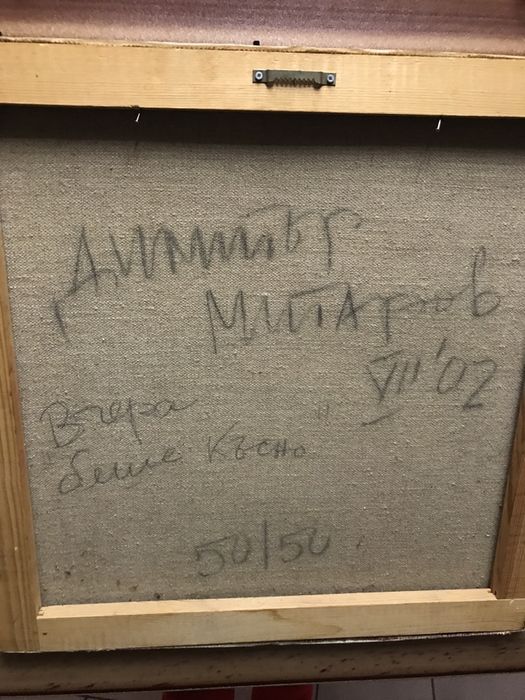 Димитър
Митарков
VIII '02
Вчера
беше късно
50/50